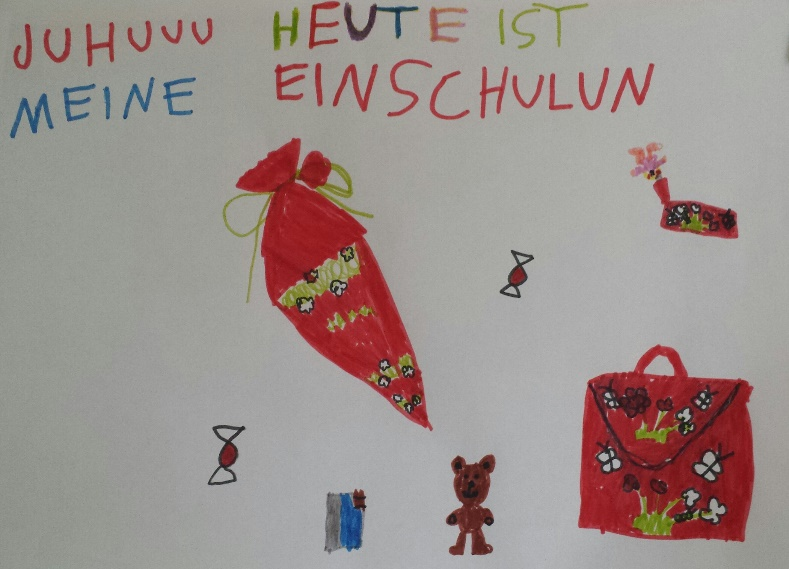 JUHUUU HEUTE IST
MEINE EINSCHULUN